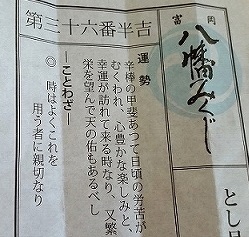 富岡
八幡みくじ
第三十六番半吉
運勢
辛棒の甲斐あつて日頃の労苦が
むくわれ、心豊かな楽しみと、
幸運が訪れて来る時なり、又繁
栄を望んで天の佑もあるべし
―ことわざ―
◎時はよくこれを
用う者に親切なり
とし